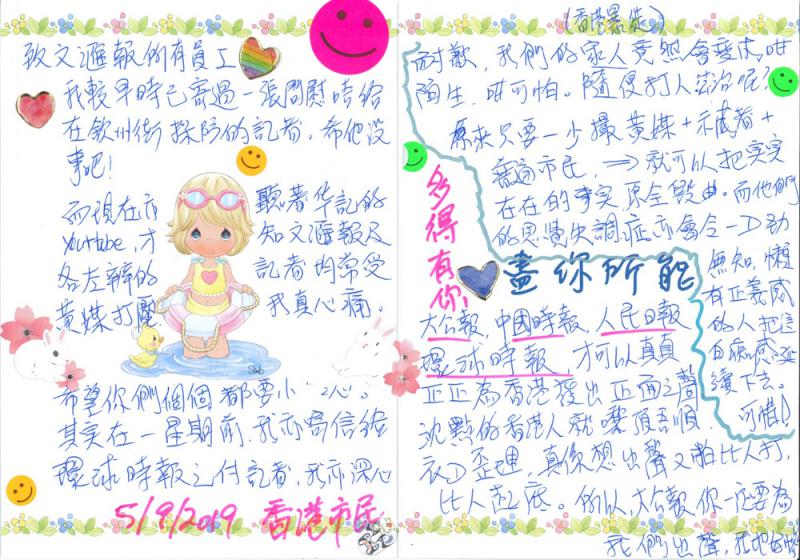 致文滙報的有員工
我較早時已寄過一張問慰咭給
在欽州街採訪的記者。希他沒
事吧!
而現在亦聽著华記的
youtube,才知文滙報及
各左辦的記者均常受
黃媒打壓 我真心痛。
希望你們個個都要小心。
其實在一星期前,我亦寄信給
環球時報之付記者,我亦深心
5/9/2019 香港市民
(香港暴徒)
耐歉,我們的家人竟然會變成咁
陌生,咁可怕。隨便打人 呢?
原來只要一少撮黃媒+ +
普通市民,⇒就可以把實實
在在的事實完全毀曲。而他們
的思覺失調症亦會令一D幼
無知,懶
有正義感
的人把這
白痴感延
續下去。
可惜!
多得有你!
盡你所能
大公報,中國時報,人民日報
環球時報 才可以真真
正正為香港發出正面之聲
沈默的香港人就要預吾順
衣D歪理,真係想出聲又怕比人打,
比人起底。所以,大公報你一定要為
我們出聲